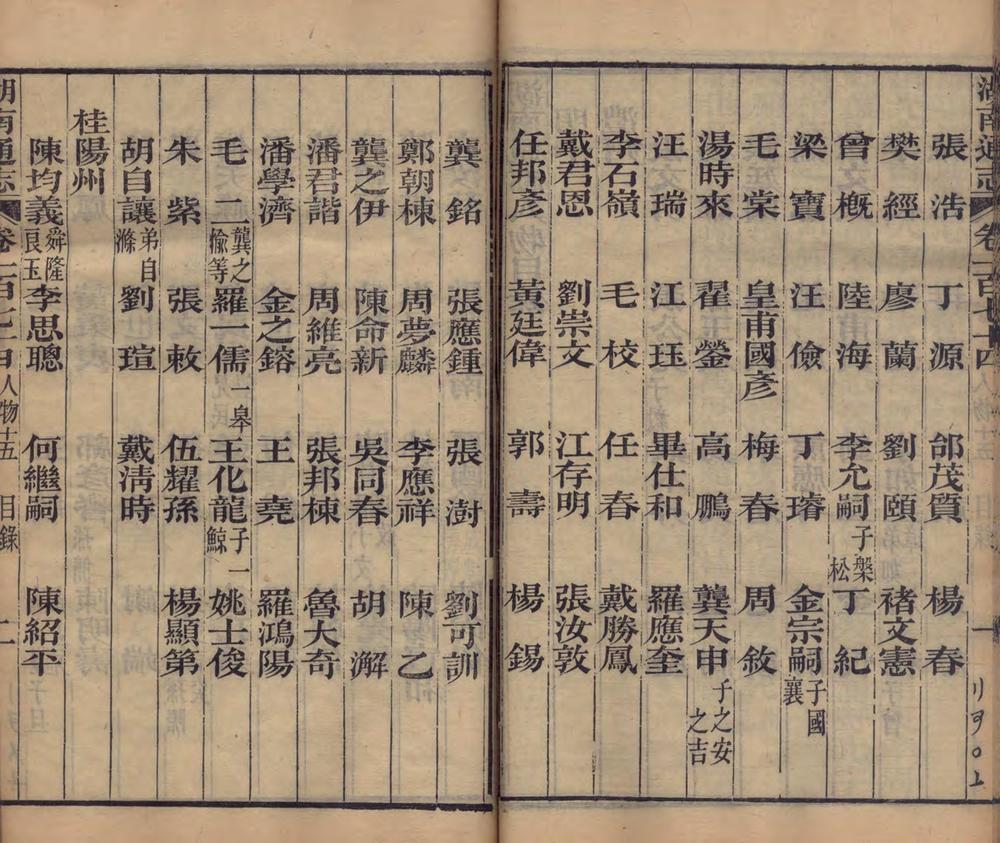 湖南通志 卷一百七十四 人物十五 目錄 一
張浩 丁源 邰茂質 楊春
樊經 廖蘭 劉頤 褚文憲
曾概 陸海 李允嗣 子槃 松 丁紀
梁寶 汪儉 丁璿 金宗嗣 子國 襄
毛棠 皇甫國彥 梅春 周敘
湯時來 翟鎣 高鵬 龔天申 子之安 之吉
汪瑞 江珏 畢仕和 羅應奎
李石嶺 毛校 任春 戴勝鳳
戴君恩 劉崇文 江存明 張汝敦
任邦彥 黃廷偉 郭壽 楊錫
龔銘 張應鍾 張澍 劉可訓
鄭朝棟 周夢麟 李應祥 陳乙
龔之伊 陳命新 吳同春 胡澥
潘君諧 周維亮 張邦棟 魯大奇
潘學濟 金之鎔 王堯 羅鴻陽
毛二 龔之 倫等 羅一儒 一皋 王化龍 子一 鯨 姚士俊
朱紫 張之敕 伍耀孫 楊顯第
胡自讓 弟自 滌 劉瑄 戴淸時
桂陽州
陳均義 舜隆 艮玉 李思聰 何繼嗣 陳紹平
胡南通志 卷一百七十四 人物十五 目錄 二